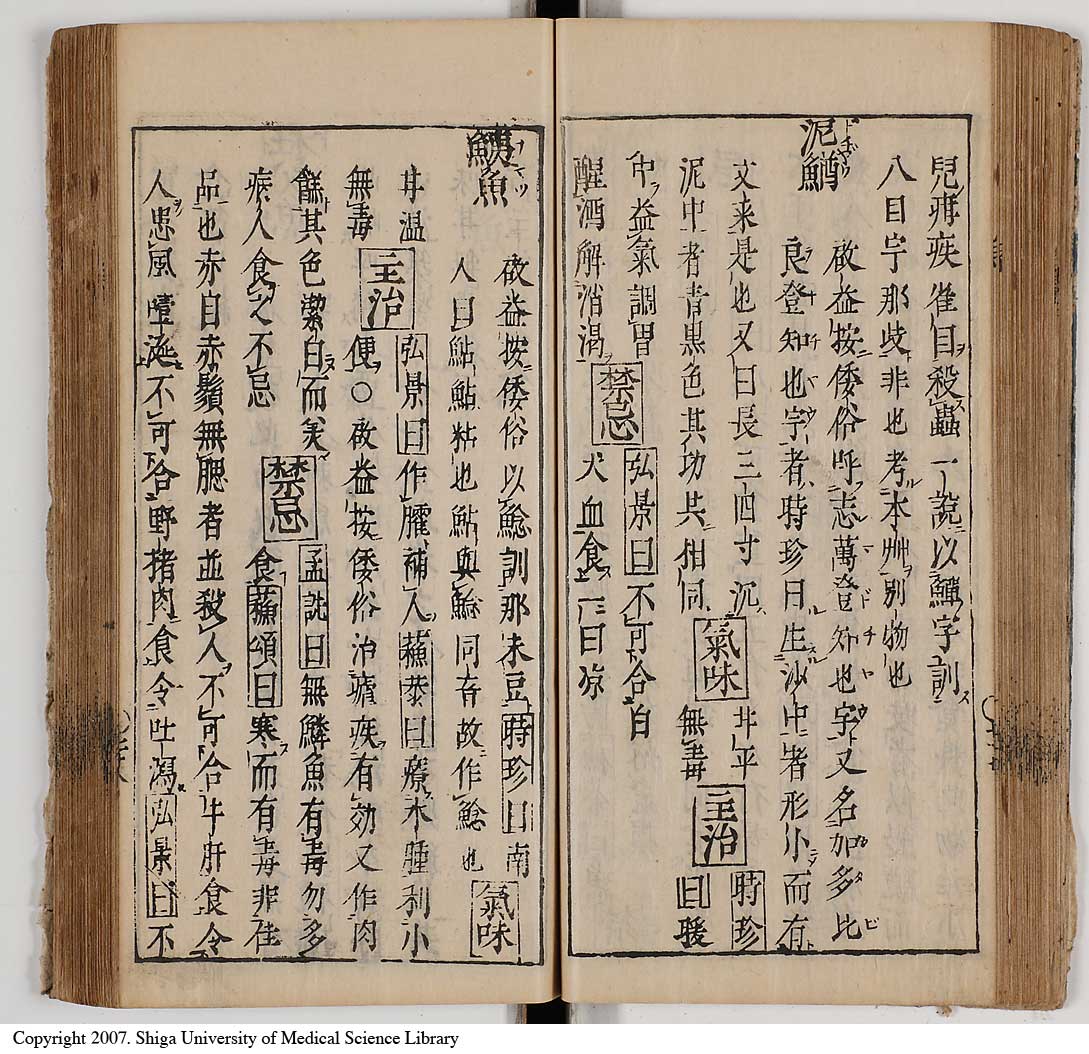 兒疳疾雀目殺蟲一說以鱓字訓
八目宇那岐非也考本艸別物也
泥鰌
啟益按倭俗呼志萬登知也字又名加多比
良登知也字者時珍曰生沙中者形小而有
文来是也又曰長三四寸沉
泥中者青黒色其功共相同 氣味 甘平無毒 主治 時珍曰暖
中益氣調胃
醒酒解消渴 禁忌 弘景曰不可合白犬血食一曰凉
鱯魚
啟益按倭俗以鯰訓那末豆時珍曰南
人曰鮎鮎粘也鮎與鯰同音故作鯰也 氣味
甘温
無毒 主治 弘景曰作臛補人蘓恭曰療水腫利小
便○啟益按倭俗治瘧疾有効又作肉
糕其色潔白而美
疾人食之不忌 禁忌 孟詵曰無鱗魚有毒勿多
食蘓頌曰寒而有毒非佳
品也赤目赤鬚無腮者並殺人不可合牛肝食令
人患風噎涎不可合野猪肉食令吐瀉弘景曰不
Copyright 2007. Shiga University of Medical Science Library